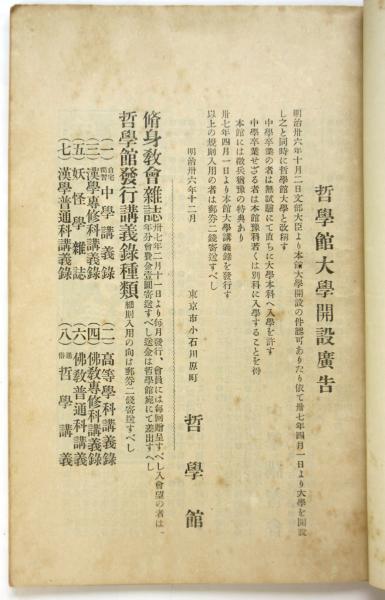 哲學館大學開設廣告
明治卅六年十月二日文部大臣より本館大學開設の件認可ありたり依て卅七年四月一日より大學を開設
し之と同時に哲學館大學と改稱す
中學卒業の者は無試驗にて直ちに大學本科へ入學を許す
中學卒業せざる者は本館豫科若くは別科に入學することを得
本館には徵兵猶豫の特典あり
卅七年四月一日より本館大學講義錄を發行す
以上の規則入用の者は郵券二錢寄送すべし
明治卅六年十二月
東京市小石川原町
哲學館
脩身敎會雜誌
卅七年二月十一日より每月發行、會員には每回贈呈すべし入會望の者は、
年分會費金壹圓寄送すべし送金は哲學館宛にて差出すべし
哲學館發行講義錄種類
細則入用の向は郵券二錢寄送すべし
(一)自宅獨習中學講義錄
(二)高等學科講義錄
(三)漢學專修科講義錄
(四)佛敎專修科講義錄
(五)妖怪學雜誌
(六)佛敎普通科講義錄
(七)漢學普通科講義錄
(八)通俗哲學講義